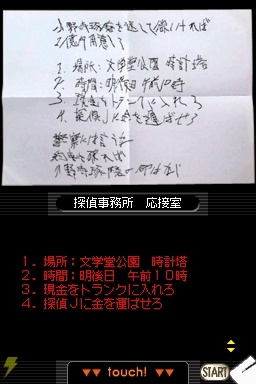 を返して欲しければ
2億円用意しろ
1. 場所：文学堂公園 時計塔
2. 時間：明後日 午前10時
3. 現金をトランクに入れろ
4. 探偵Jに金を運ばせろ
警察には言うな
約束を破れば
の命はない
探偵事務所 応接室
1．場所：文学堂公園 時計塔
2．時間：明後日 午前１０時
3．現金をトランクに入れろ
4．探偵Ｊに金を運ばせろ
touch!
START